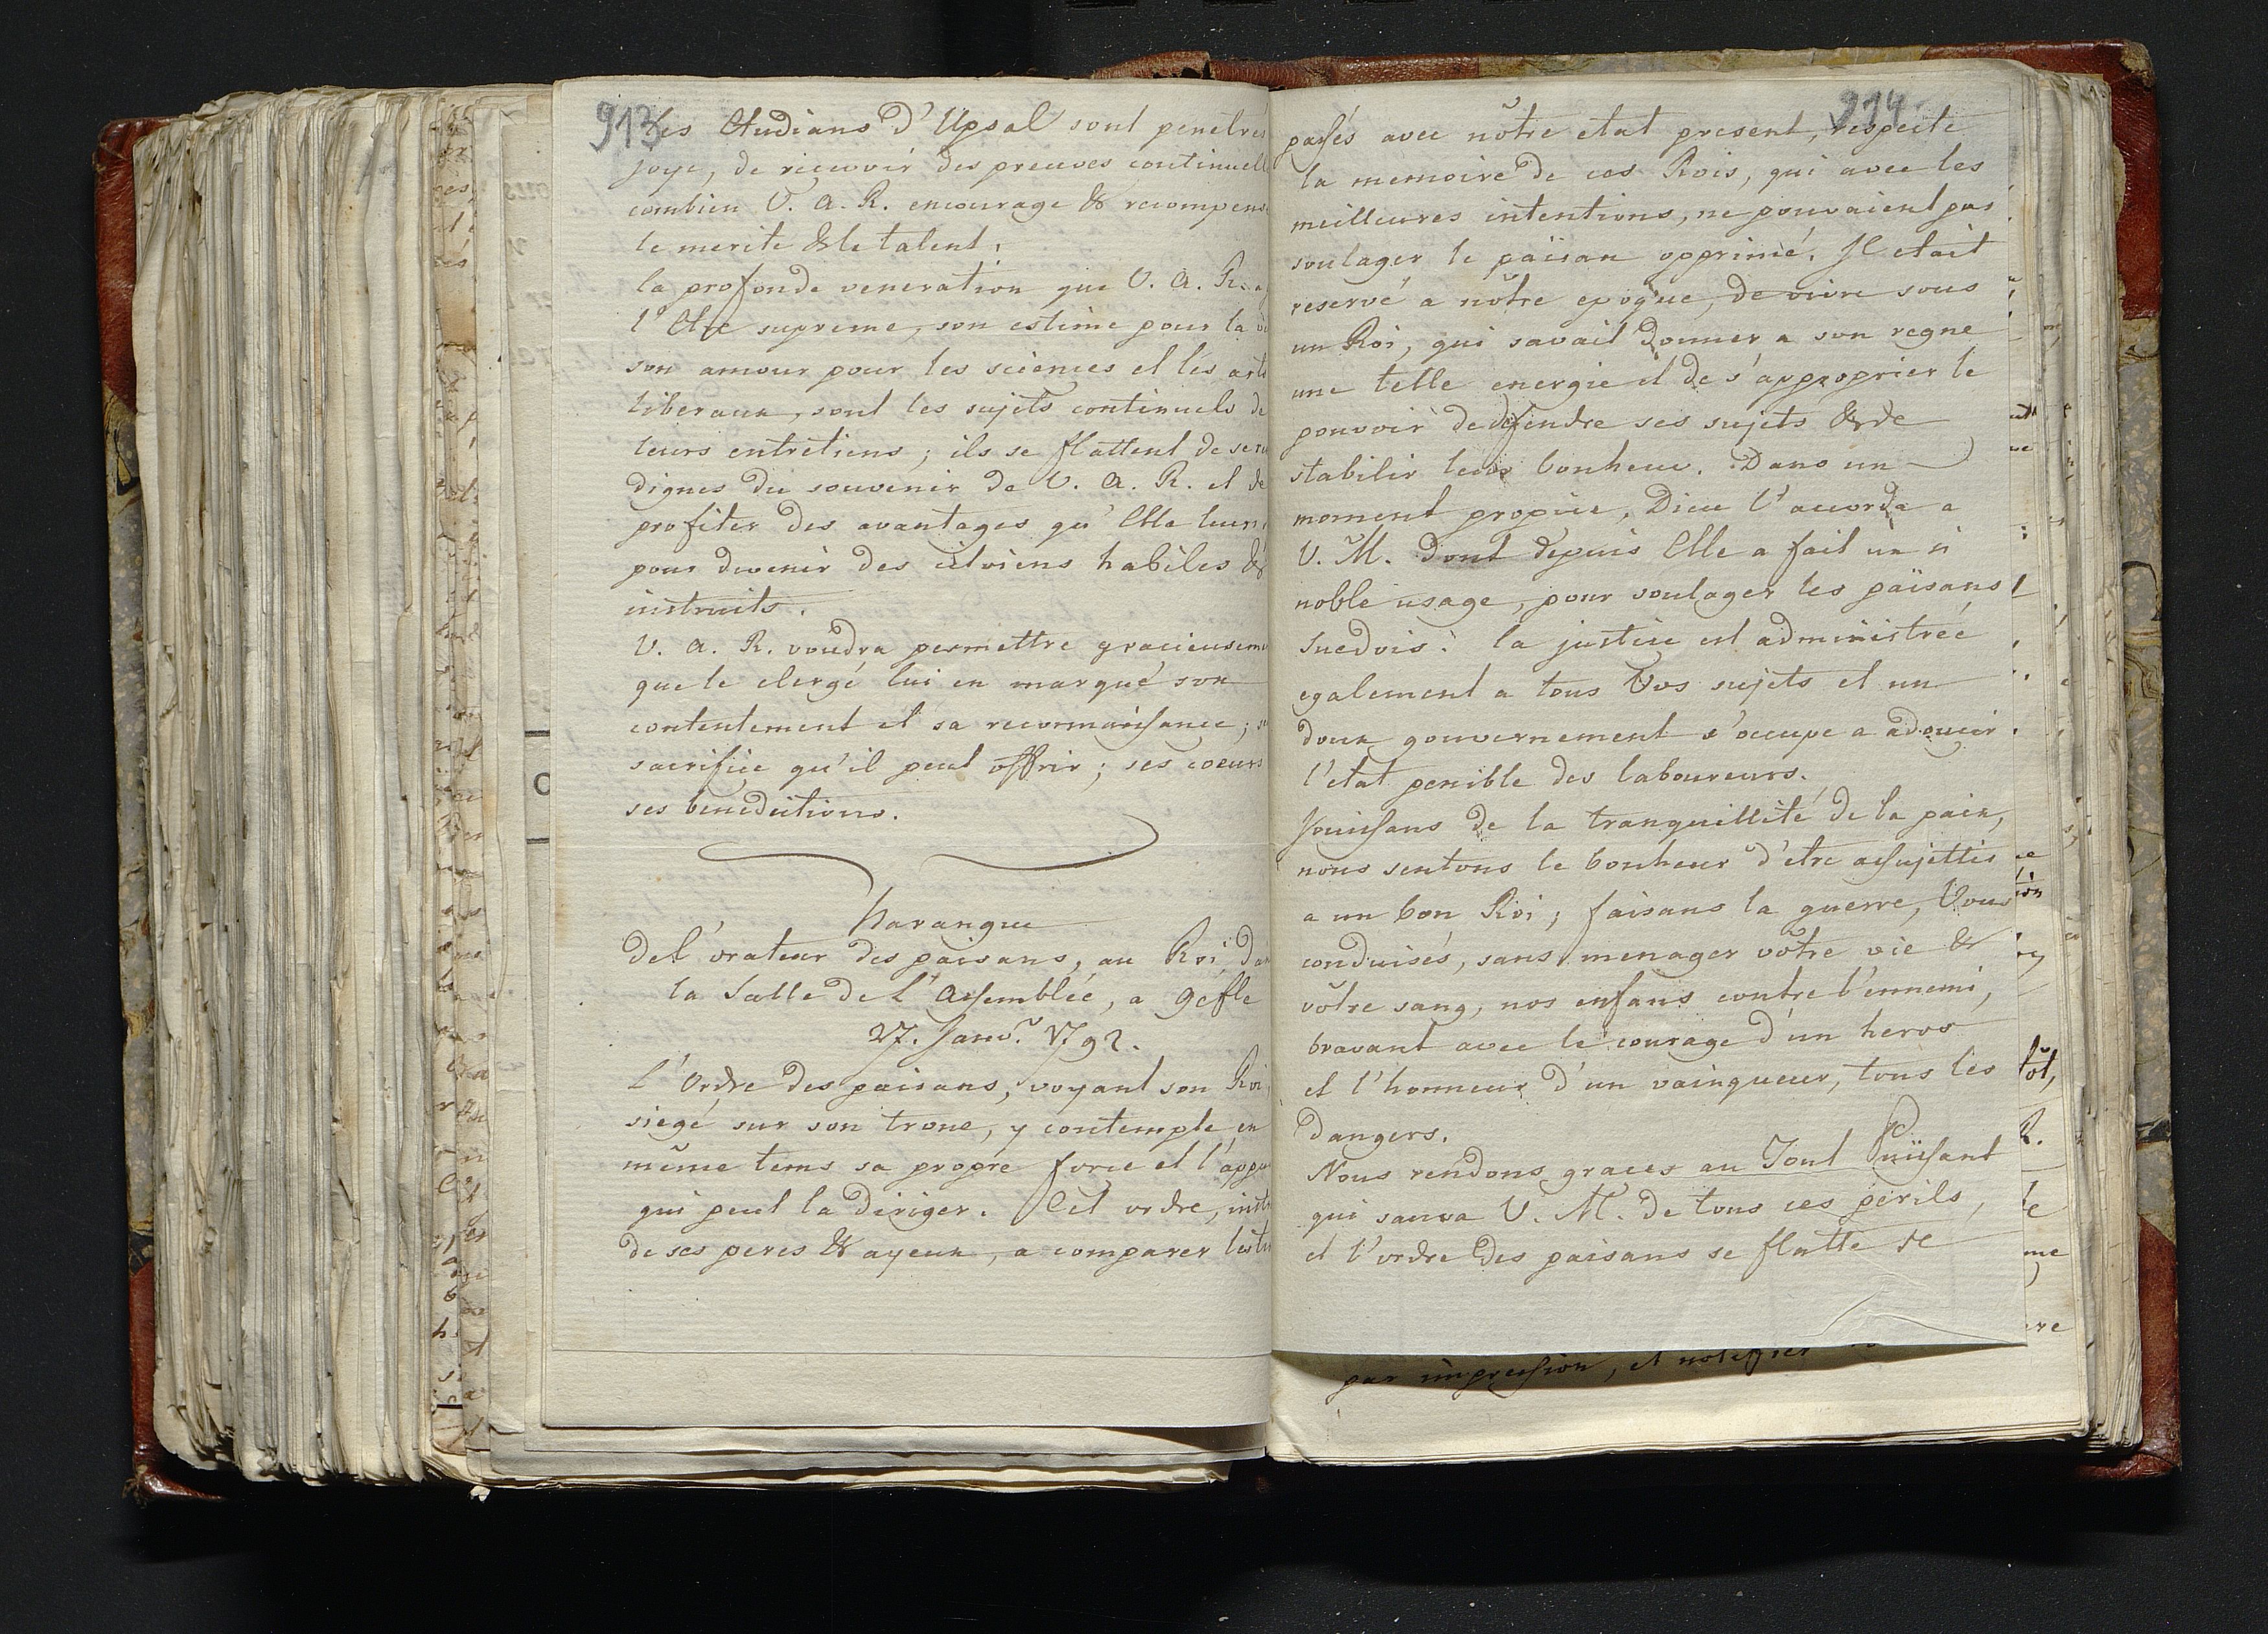 913
les Etudians d'Upsal sont penetres
joye, de recevoir des preuves continuell
combien V. A. R. encourage & recompens
le merite & le talent.
la profonde veneration que V. A. R. a
l'Etre supreme, son estime pour la
son amour pour les sciences et les arts
liberaux, sont les sujets continuels de
leurs entretiens; ils se flattent de
dignes du souvenir de V. A. R. et de
profiter des avantages qu'Elle leur
pour devenir des citoiens habiles &
instruits.
V. A. R. voudra permettre gracieuseme
que le clergé lui en marqué son
contentement et sa reconnaissance;
sacrifice qu'il peut offrir; ses coeurs
ses benedictions.
Harangue
de l'orateur des paisans, au Roi, da
la Salle de l'Assemblée, a Gefle
27. Janv. 1792.
L'Ordre des paisans, voyant son Roi
siegé sur son trone, y contemple en
même tems sa propre force et l'appu
qui peut la diriger. Cet ordre, inst
de ses peres & ayeux, a comparer les
914
passés avec nôtre etat present, respecte
la memoire de ces Rois, qui avec les
meilleures intentions, ne pouvaient pas
soulager le païsan opprimé. Il etait
reservé a nôtre epoque, de vivre sous
un Roi, qui savait donner a son regne
une telle energie et de s'approprier le
pouvoir de defendre ses sujets & de
stabilir leur bonheur. Dans un
moment propice, Dieu l'accorda a
V. M. dont depuis Elle a fait un si
noble usage, pour soulager les païsans
Suedois: la justice est administrée
egalement a tous Vos sujets et un
doux gouvernement s'occupe a adoucir
l'etat penible des laboureurs.
Jouissans de la tranquillité de la paix,
nous sentons le bonheur d'etre assujettis
a un bon Roi; faisans la guerre, Vous
conduisés, sans menager vôtre vie &
vôtre sang, nos enfans contre l'ennemi,
bravant avec le courage d'un heros
et l'honneur d'un vainqueur, tous les
dangers.
Nous rendons graces au Tout Puissant
qui sauva V. M. de tous ces perils,
et l'ordre des paisans se flatte de
par impression, et